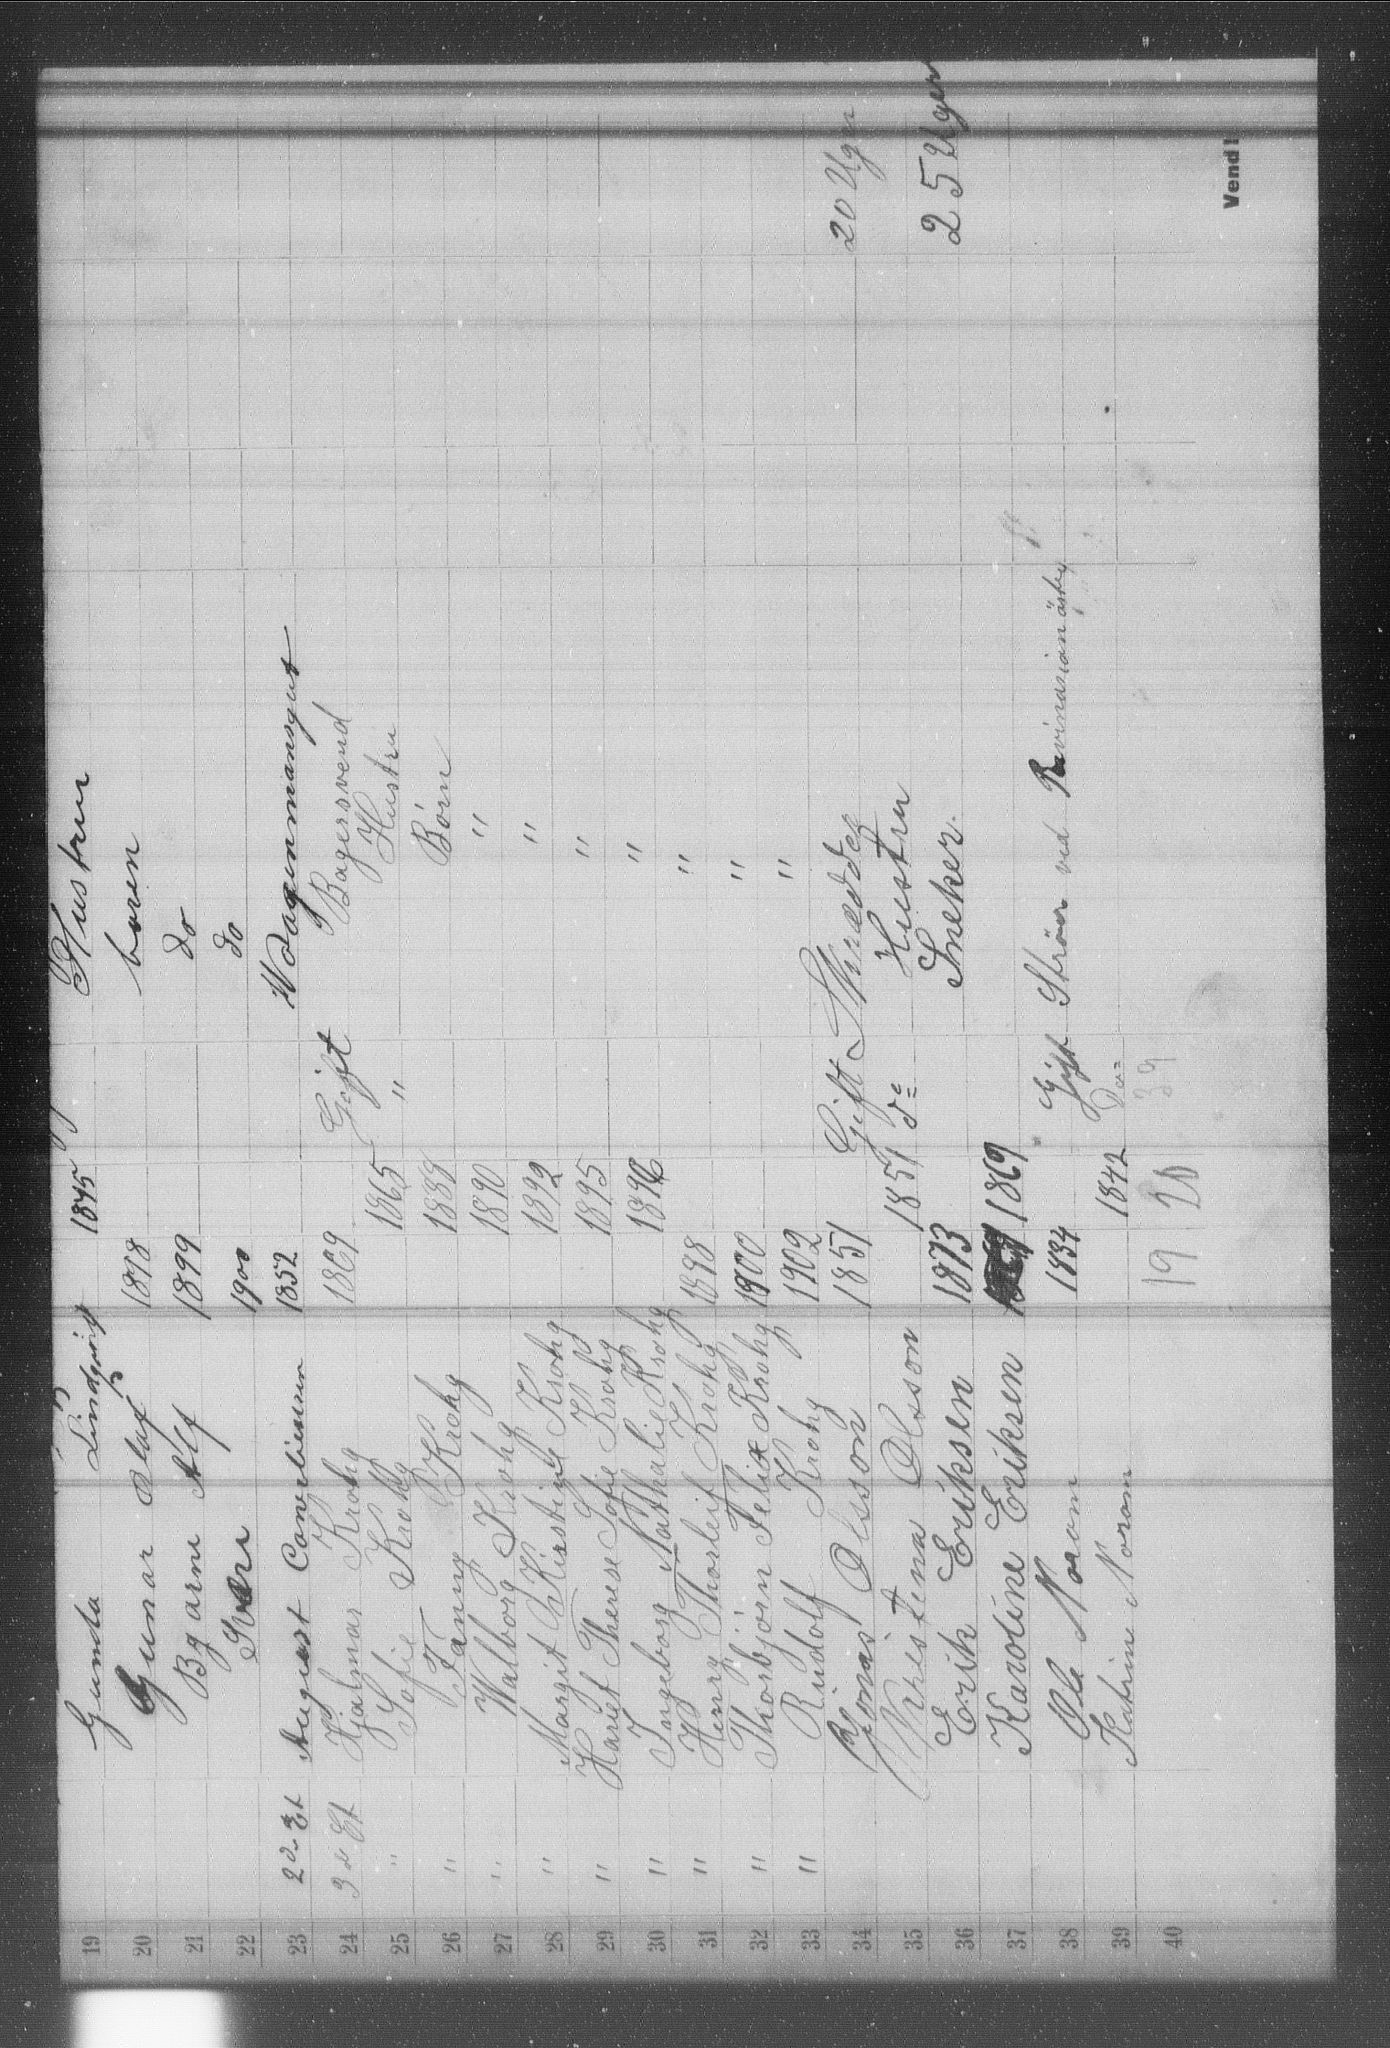 19 Gumla Lindqvist 1845 Hustrue
20 Gunar Olaf 1898 boren
21 Bgarne Alf 1899 do
22 1900 do
23 2d Et August 1852
24 3d Et Hjalmar Krohg 1869 Gift Bagersvend
25 " Sofie Krohg 1865 " Hustru
26 " Fanny Krohg 1889 Børn
27 " Walborg Krohg 1890 "
28 " Margit Kirstine Krohg 1892 "
29 " Hariet Therese Sofie Krohg 1895 "
30 " Ingeborg Nathalie Krohg 1896 "
31 " Henrg Thorleif Krohg 1898 "
32 " Thorbjørn Felix Krohg 1900 "
33 " Rudolf Krohg 1902 "
34 Jonas Olsson 1851 Gift Skrædder 20 Uger
35 Kristina Olsson 1851 do Hustru
36 Erik Eriksen 1873 Sneker. 25 Uger
37 Karoline Eriksen 1869
38 Ola Norom 1834 Gift ved
39 Katrine Norom 1842 Do
40 19 20 39
Vend!